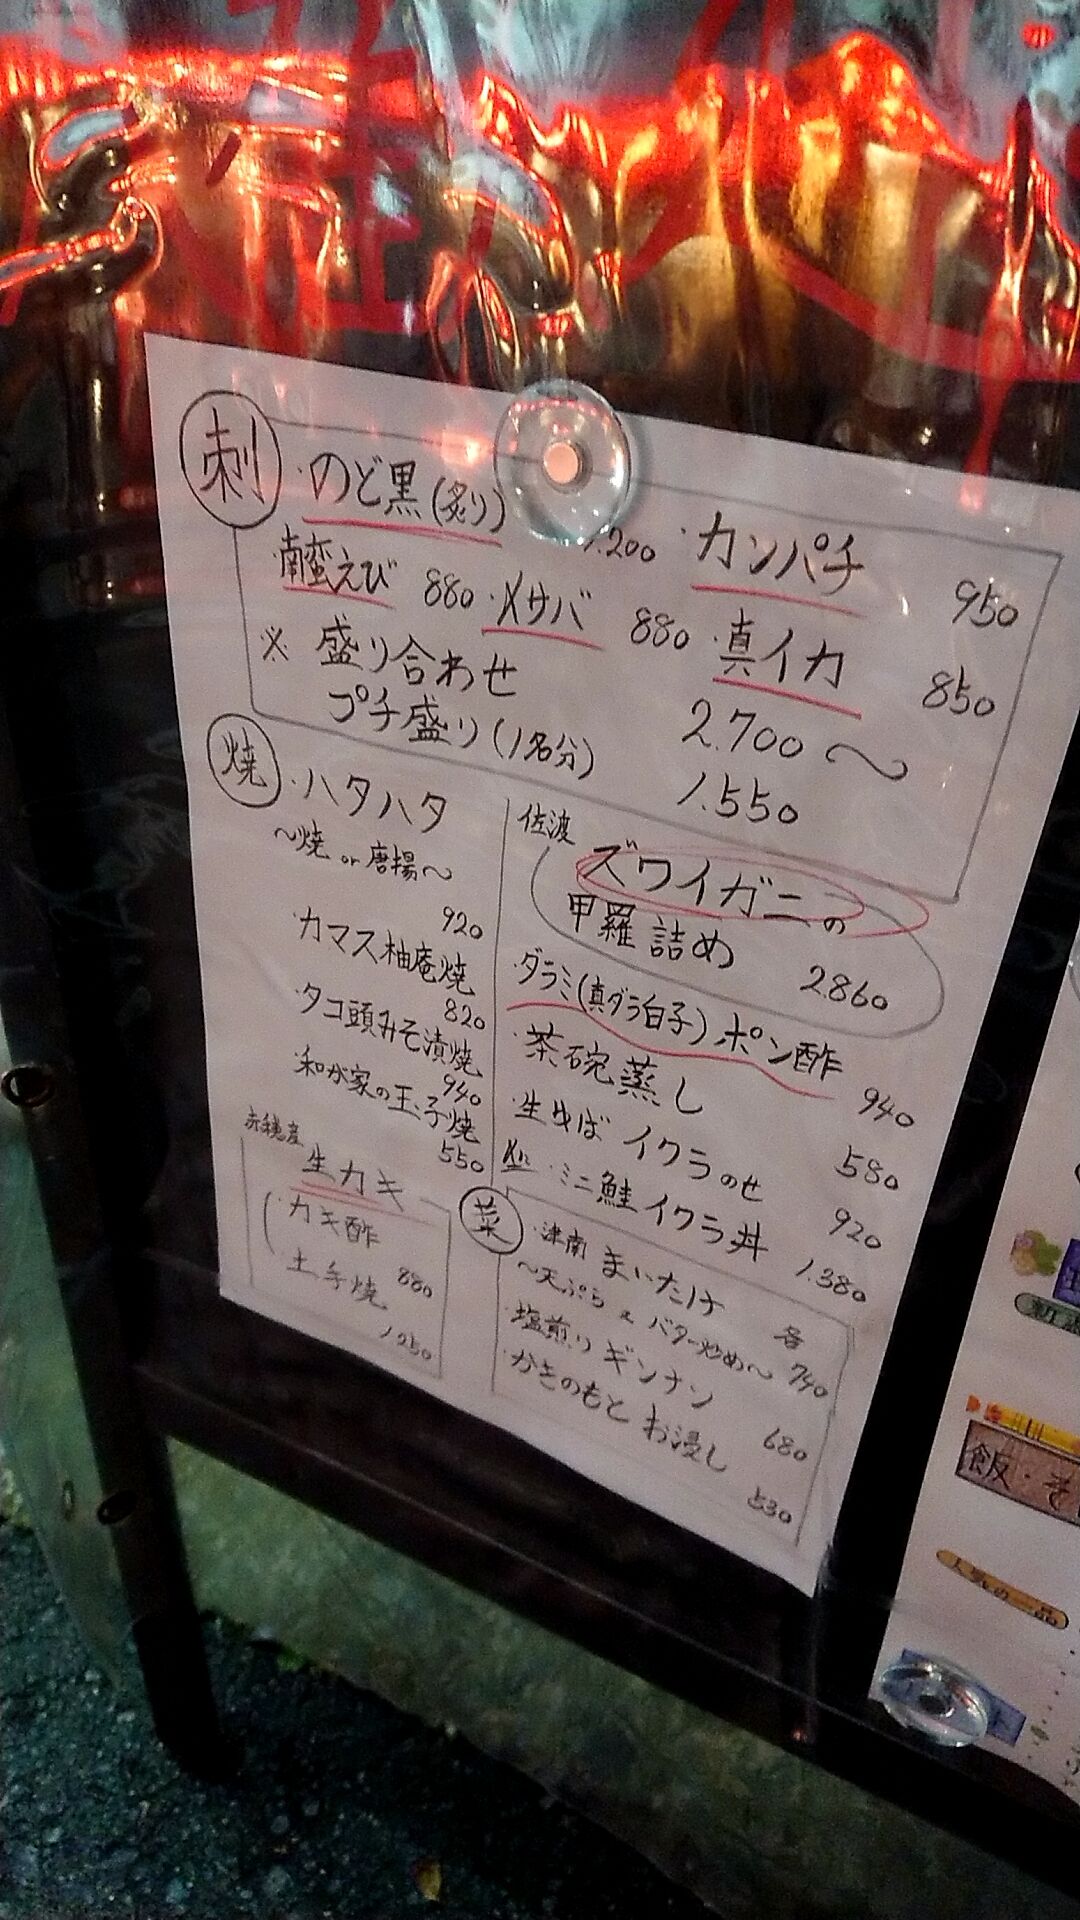 刺
・のど黒(炙り) 1.200
・カンパチ 950
南蛮えび 880
・〆サバ 880
・真イカ 850
※ 盛り合わせ 2.700〜
プチ盛り(1名分) 1.550
焼
・ハタハタ
〜焼 or 唐揚〜 920
カマス柚庵焼 820
・タコ頭みそ漬焼 940
・和が家の玉子焼 550
赤穂産
生カキ
・カキ酢 880
・土手焼 1250
佐渡
ズワイガニの
甲羅詰め 2860
・ダラミ(真ダラ白子)ポン酢 940
・茶碗蒸し 580
・生ゆば イクラのせ 920
〆に・ミニ鮭イクラ丼 1.380
菜
・津南 まいたけ 各
〜天ぷら or バター炒め〜 740
・塩煎り ギンナン 680
・かきのもと お浸し 530
飯・そ
人気の一品